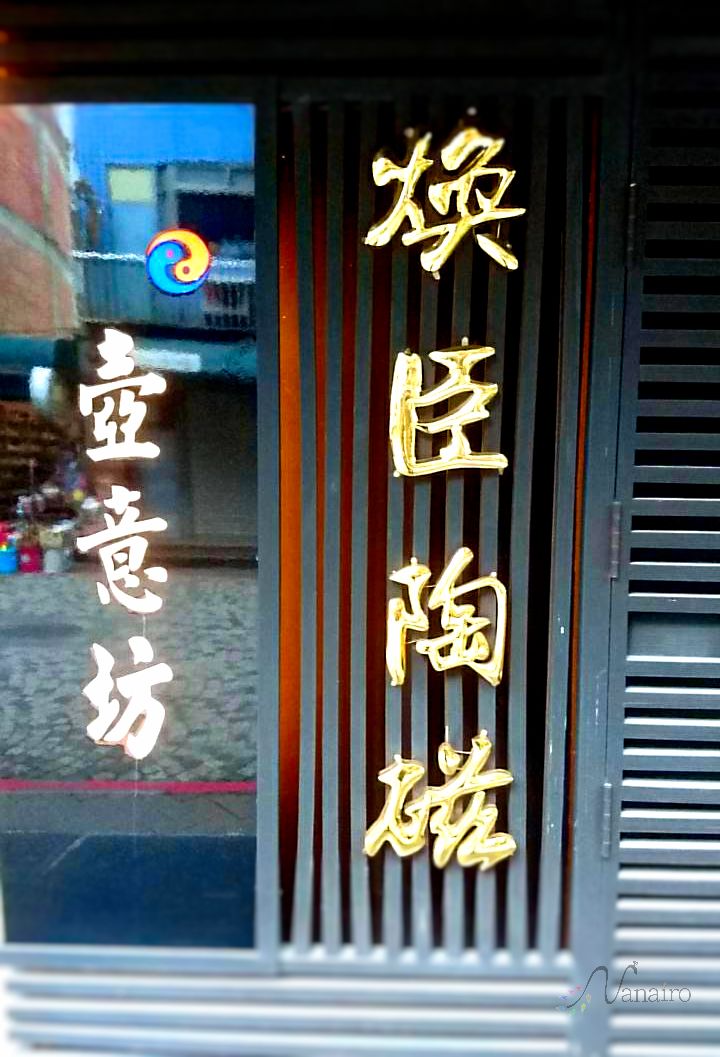 煥臣陶磁
壺意坊
Nanairo